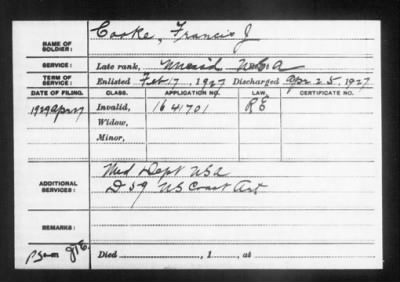 Cooke, Francis J
NAME OF SOLDIER:
SERVICE: Late rank, USA
TERM OF SERVICE: Enlisted Feb 17, 1927 Discharged Apr 25, 1927
DATE OF FILING. CLASS. APPLICATION NO. LAW. CERTIFICATE NO.
1929 Apr 17 Invalid, 1641701 RE
Widow,
Minor,
ADDITIONAL SERVICES: Med Dept USA
D 59 US Coast Art
REMARKS:
Died , 1 , at